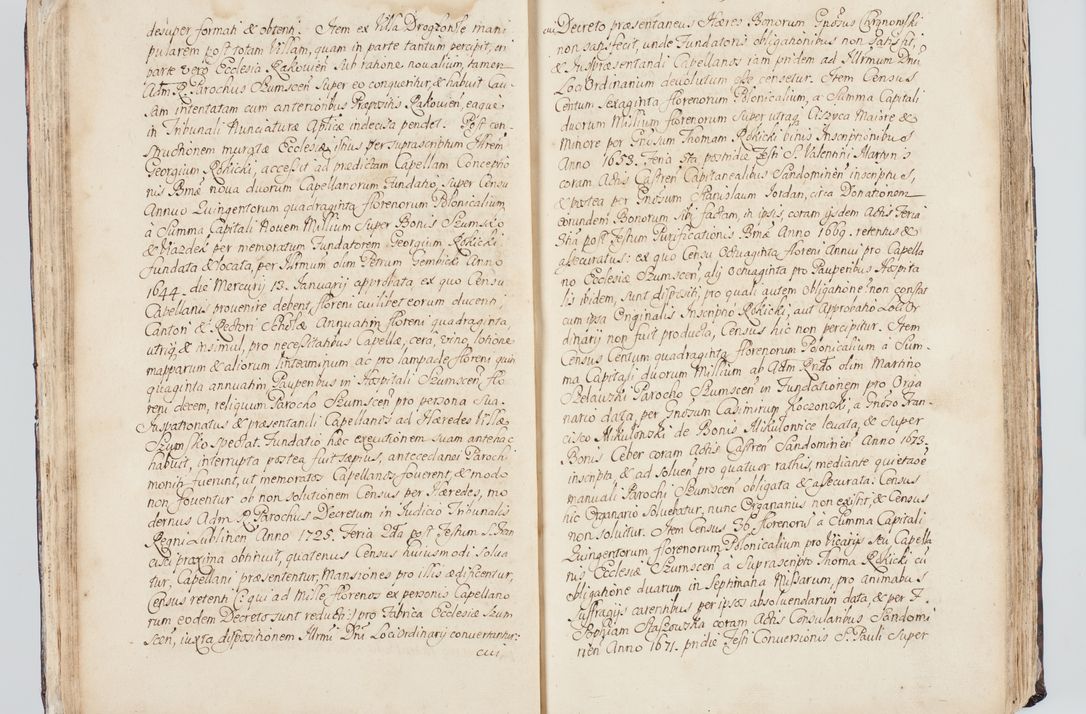 desuper formari & obtenri. Item ex Villa Drogzonsk mani
pularem post totam Villam, quam in parte tantum percipit, ex
parte vero Ecclesia Rakovien sub ratione novalium, tamen
Adm. R. Parochus Szumscen super eo conqueritur, & habuit Cau
sam intentatam cum anterioribus Præpositis Rakovien, eaque
in Tribunali Nunciaturæ Aplicæ indecisa pendet. Post con
structionem muratæ Ecclesiæ istius per suprascriptum Mrem
Georgium Rokicki, accessit ad prædictam Capellam Conceptio
nis Bmæ nova duorum Capellanorum Fundatio, super Censu
Annuo Quingentorum quadraginta florenorum Polonicalium,
à Summa Capitali Novem Millium super Bonis Szumsko
& Nazdek per memoratum Fundatorem Georgium Rokicki
fundata & locata, per Illrmum olim Petrum Gembicki Anno
1644. die Mercurij 13. Januarij approbata ex quo Censu
Capellanis provenire debent, floreni cuilibet eorum ducenti,
Cantori & Rectori Scholæ Annuatim floreni quadraginta,
utriq & insimul, pro necessitatibus Capellæ, cera, vino, lotione
mapparum & aliorum linteaminum ac pro lampade, floreni quin
quaginta annuatim Pauperibus in Hospitali Szumscen, flo
reni decem, reliquum Parocho Szumscen pro persona sua.
Juspatronatus & præsentandi Capellanos ad Hæredes Villæ
Szumsko spectat. Fundatio hæc executionem suam antehac
habuit, interrupta postea fuit sæpius, antecedanei Parochi
moniti fuerunt, ut memoratos Capellanos foverent, & modo
non foventur ob non solutionem Census per Hæredes, mo
dernus Adm. R. Parochus Decretum in Judicio Tribunalis
Regni Lublinen Anno 1725. Feria 2da post Festum S. Fran
cisci proxima obtinuit, quatenus Census huiusmodi solva
tur, Capellani præsententur, Mansiones pro illis ædificentur,
Census retenti (: qui ad mille florenos ex personis Capellano
rum eodem Decreto sunt reducti :) pro Fabrica Ecclesiæ Szum
scen, iuxta dispositionem Illrmi Dni Loci Ordinarij convertantur:
cui
cui Decreto præsentaneus Hæres Bonorum Gnosus Chronowski
non satisfecit, unde Fundatoris obligationibus non satisfit,
& Jus præsentandi Capellanos iam pridem ad Illrmum Dnum
Loci Ordinarium devolutum esse censetur. Item Census
Centum sexaginta florenorum Polonicalium, a Summa Capitali
duorum Millium florenorum super utraq Cisovca Maiore &
Minore per Gnosum Thomam Rokicki binis Inscriptionibus
Anno 1653. Feria 6ta postridie Festi S. Valentini Martyris
coram Actis Castren Capitanealibus Sandominen inscriptus,
& postea per Gnosum Stanislaum Jordan, circa Donationem
eorundem Bonorum sibi factam, in ipsis, coram ijsdem Actis Feria
5ta post Festum Purificationis Bmæ Anno 1669. retentus &
assecuratus: ex quo Censu Octuaginta floreni Annui pro Capella
no Ecclesiæ Szumscen, alij octuaginta pro Pauperibus Hospita
lis ibidem, sunt dispositi, pro quali autem obligatione non constat
cum ipsa Originalis Inscriptio Rokicki, aut Approbatio Loci Or
dinarij non fuit producta, Census hic non percipitur. Item
Census Centum quadraginta florenorum Polonicalium à Sum
ma Capitali duorum Millium ab Adm Rndo olim Martino
Szelawski Parocho Szumscen in Fundationem pro Orga
nario data, per Gnosum Casimirum Koczonski, a Gnoso Fran
cisco Mikulowski de Bonis Mikulowice levata, & super
Bonis Ceber coram Actis Castren Sandominen Anno 1673.
inscripta & ad solven pro quatuor rathis, mediante quietaoe
manuali Parochi Szumscen obligata & assecurata: Census
hic Organario solvebatur, nunc Organarius non existit, & Census
non solvitur. Item Census 36. florenorum à Summa Capitali
Quingentorum florenorum Polonicalium pro Vicarijs seu Capella
nis Ecclesiæ Szumscen à suprascripto Thoma Rokicki cu
obligatione duarum in Septimana Missarum, pro animabus
suffragijs carentibus per ipsos absolvendarum data, & per G.
Sophiam Staszowska coram Actis Consularibus Sandomi
rien Anno 1671. pridie Festi Conversionis S. Pauli super